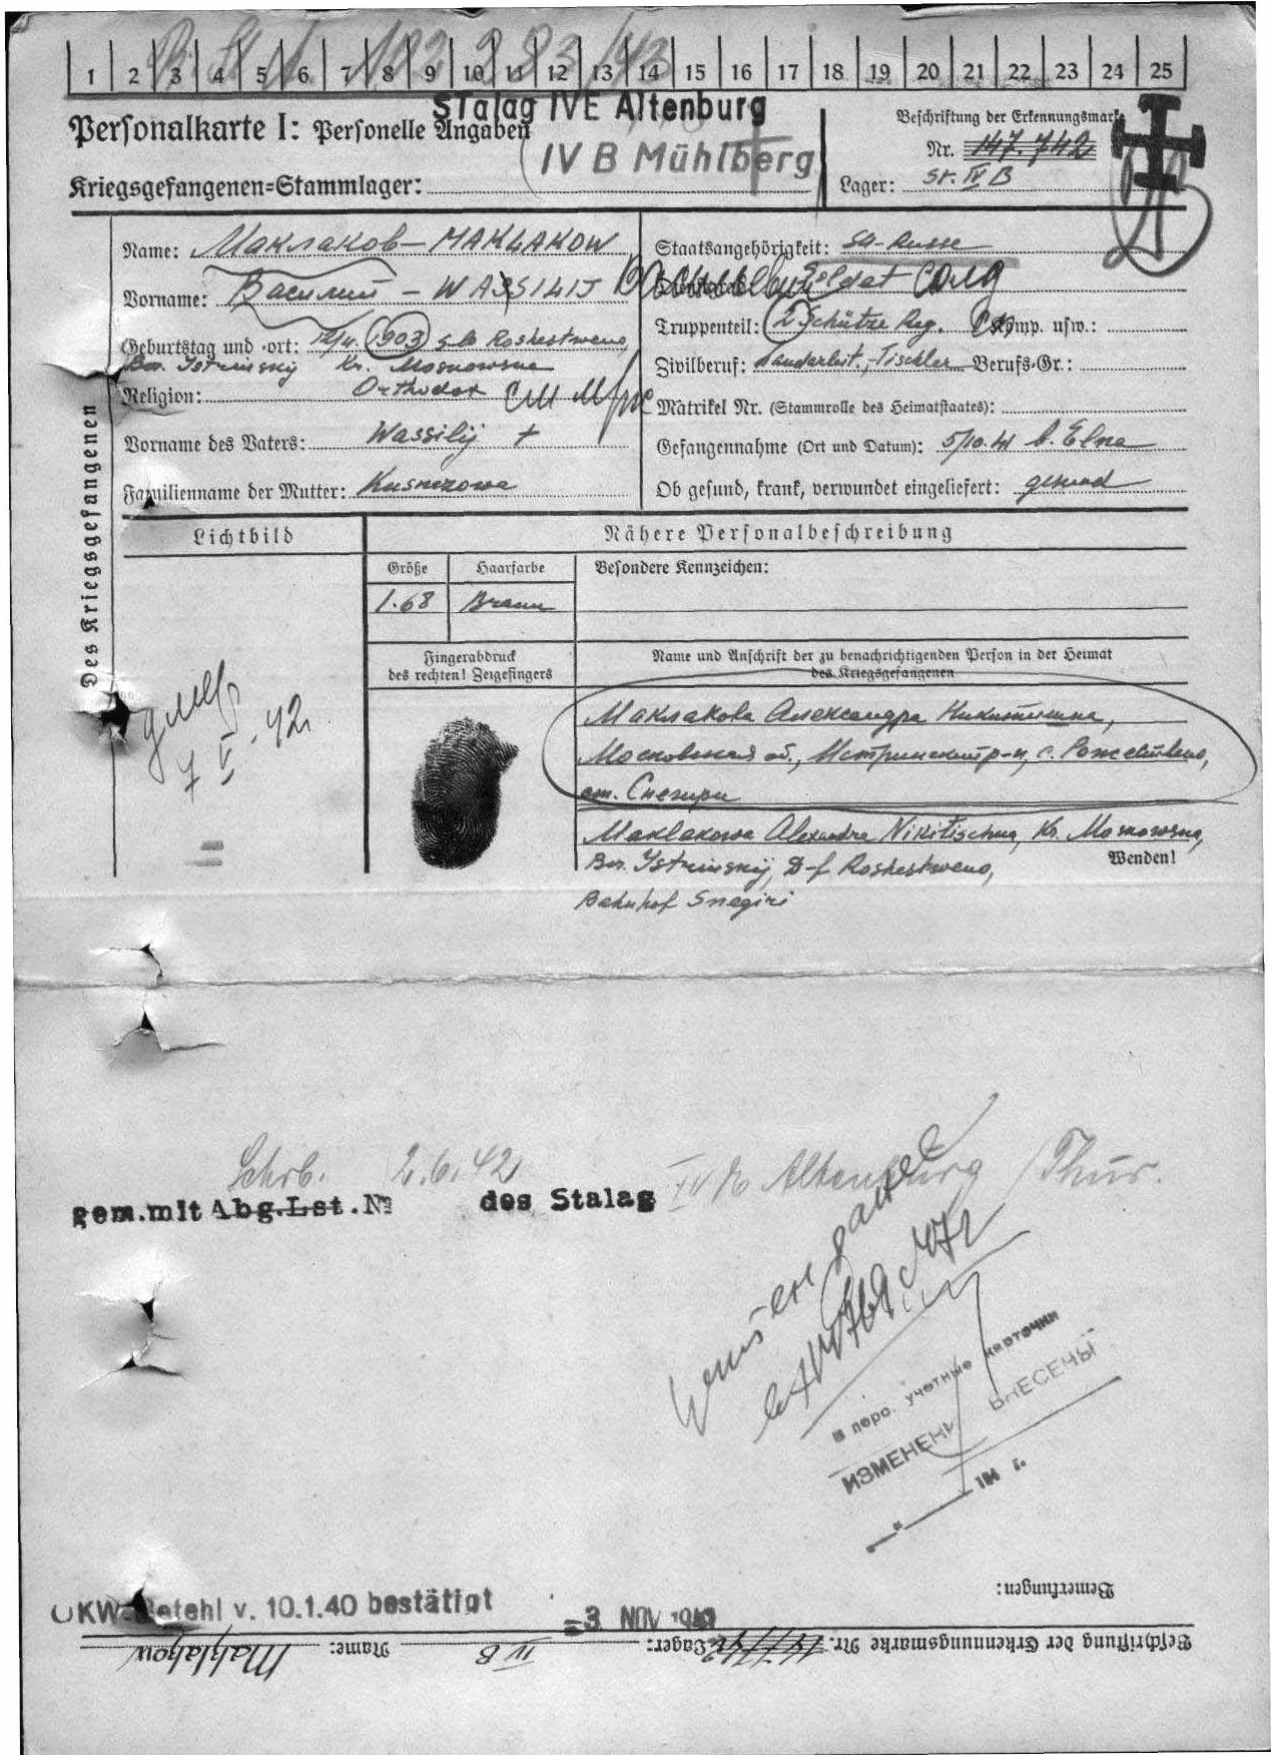 1 2 3 4 5 6 7 8 9 10 11 12 13 14 15 16 17 18 19 20 21 22 23 24 25
Stalag IVE Altenburg
Personalkarte I: Personelle Angaben
IV B Mühlberg
Kriegsgefangenen=Stammlager:
Beschriftung der Erkennungsmarke
Nr. 147.742
Lager: St. IV B
Des Kriegsgefangenen
Name: Маклаков – MAKLAKOW
Vorname: Василий – WASSILIJ
Geburtstag und -ort: 1903 Roshestweno,
Bez. Istrinskij Kr. Moskowska
Religion: Orthodox
Vorname des Vaters: Wassilij +
Familienname der Mutter: Kusnezowa
Staatsangehörigkeit: Russe
Dienstgrad: Soldat
Truppenteil: 2 Schütze Reg. Komp. usw.:
Zivilberuf: Tischler Berufs-Gr.:
Matrikel Nr. (Stammrolle des Heimatstaates):
Gefangennahme (Ort und Datum): 5/10.41 b. Elna
Ob gesund, krank, verwundet eingeliefert: gesund
Lichtbild
Nähere Personalbeschreibung
Größe Haarfarbe Besondere Kennzeichen:
1.68 Braun
Fingerabdruck
des rechten! Zeigefingers
Name und Anschrift der zu benachrichtigenden Person in der Heimat
des Kriegsgefangenen
Маклакова Александра Никитишна,
Московская об., Истринский р-н, с. Рождествено,
ст. Снегири
Maklakowa Alexandra Nikitischna, Kr. Moskowska,
Bez. Istrinskij, D-f Roshestweno,
Wenden!
Bahnhof Snegiri
умер
7 V. 42
Schrb. 2.6.42 Altenburg / Thür.
gem. mit Abg.Lst. № des Stalag
в перс. учетные карточки
ИЗМЕНЕНИ ВНЕСЕНЫ
194 г.
Bemerkungen:
OKW-Befehl v. 10.1.40 bestätigt
=3. NOV 1941
Beschriftung der Erkennungsmarke Nr. 147742 Lager: IV B Name: Maklakow